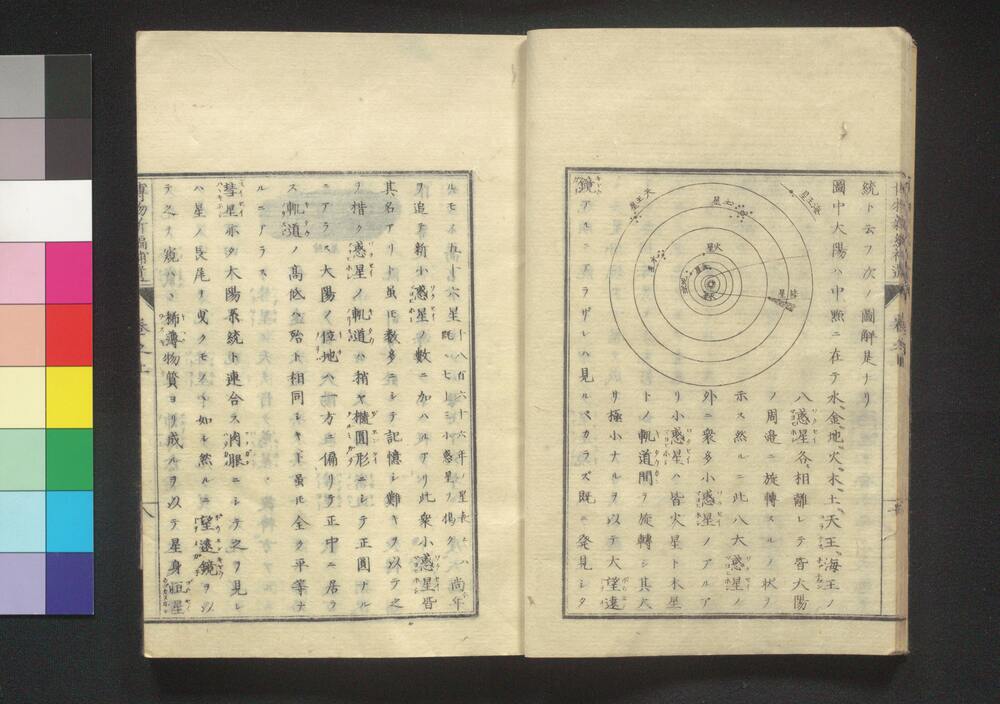 統ト云フ次ノ圖解是ナリ
圖中大陽ハ中㸃ニ在テ水、金、地、火、木、土、天王、海王ノ
八惑星各相離レテ皆大陽
ノ周邉ニ旋轉スルノ状ヲ
示ス然ルニ此八大惑星ノ
外ニ衆多小惑星ノアルア
リ小惑星ハ皆火星ト木星
トノ軌道間ヲ旋轉シ其大
サ極小ナルヲ以テ大望遠
鏡アルニ非ラザレハ見ルヘカラズ既ニ発見シタ
海王星
天王星
土星
木星
火星
彗星
ルモノ五十六星
十八百六十六年ノ星表ニハ
既ニ七十三小惑星ヲ掲ク
尚年
ヲ追テ新小惑星ノ数ニ加ハルアリ此衆小惑星皆
其名アリト虽𪜈数多ニシテ記憶シ難キヲ以テ之
ヲ楷ク惑星ノ軌道ハ稍ヤ橢圓形ニシテ正圓ナル
ニアラス大陽ノ位地ハ一方ニ偏リテ正中ニ居ラ
ス軌道ノ髙低ハ殆ト相同シキト虽𪜈全ク平等ナ
ルニアラス
彗星亦タ大陽系統ト連合ス肉眼ニシテ之ヲ見レ
ハ星ノ長尾ヲ曳クモノヽ如シ然ルニ望遠鏡ヲ以
テ之ヲ窺ハヽ稀薄物質ヨリ成ルヲ以テ星身恒星